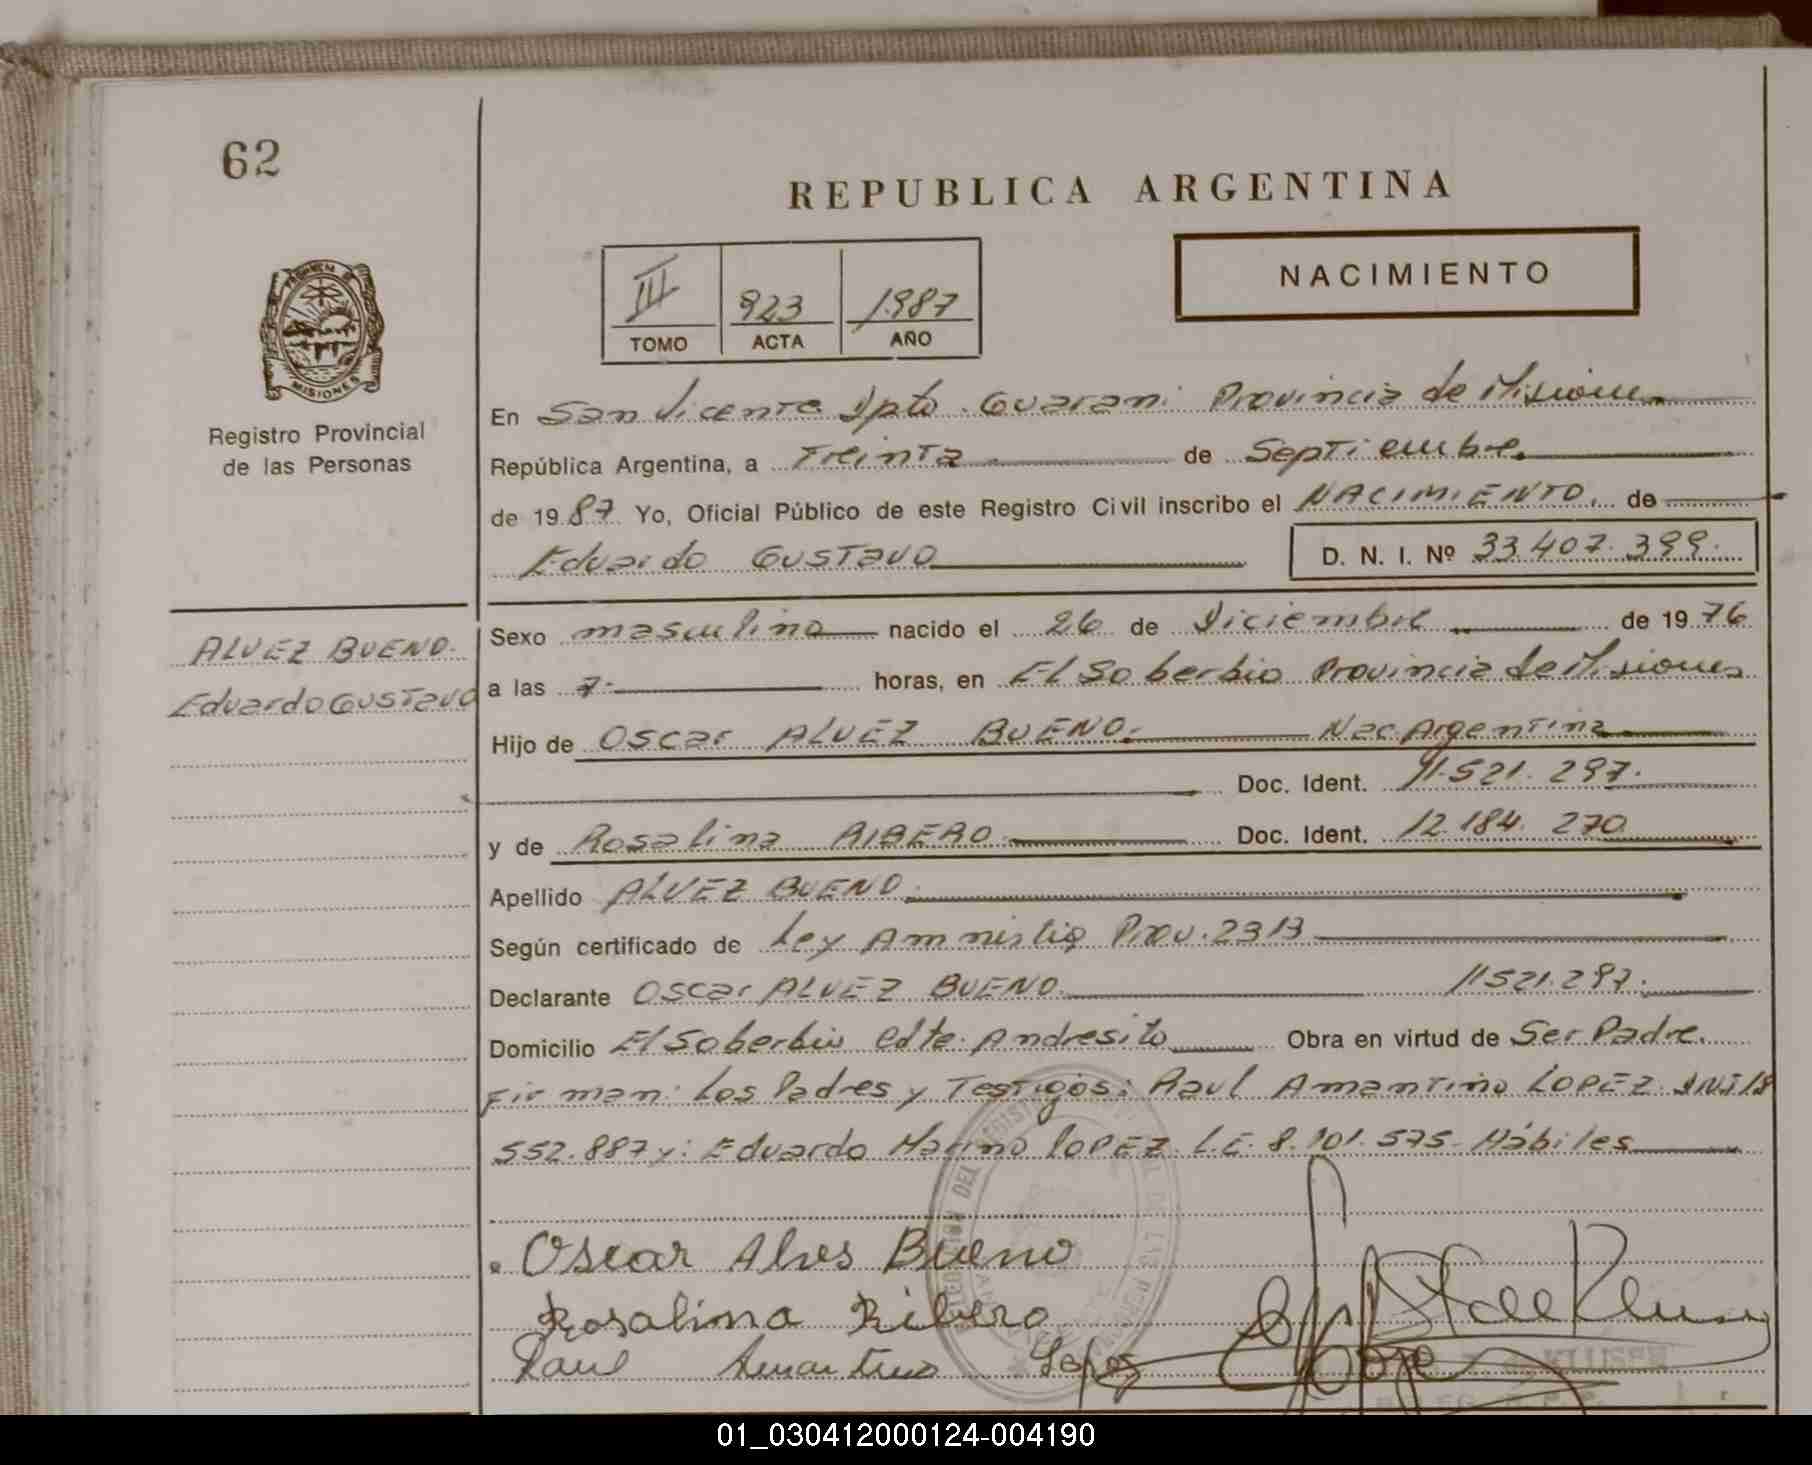 62
REPUBLICA ARGENTINA
NACIMIENTO
III 923 1987
TOMO ACTA AÑO
PROVINCIA DE
MISIONES
Registro Provincial
de las Personas
En San Vicente Dpto. Guarani Provincia de Misiones
República Argentina, a Treinta de Septiembre
de 1987 Yo, Oficial Público de este Registro Civil inscribo el NACIMIENTO. de
Eduardo GUSTavo D. N. I. Nº 33.407.399.
ALVEZ BUENO.
Eduardo GUSTavo
Sexo masculino nacido el 26 de Diciembre de 1976
a las 7- horas, en El Soberbio Provincia de Misiones
Hijo de Oscar ALVEZ BUENO. Nac. Argentina
Doc. Ident. 11.521.297.
y de Rosalina RIBERO Doc. Ident. 12.184.270
Apellido ALVEZ BUENO.
Según certificado de Ley Amnistia Prov. 2313
Declarante Oscar ALVEZ BUENO 11521.297.
Domicilio El Soberbio Cdte. Andresito Obra en virtud de Ser Padre.
Firman: Los Padres y Testigos: Raul Amantino LOPEZ. DNI 18
552.887 y: Eduardo Marino LOPEZ L.E. 8.101.575- Hábiles
Oscar Alves Bueno
Rosalina Ribero
Raul Amantino Lopez
KLUSEN
01_030412000124-004190